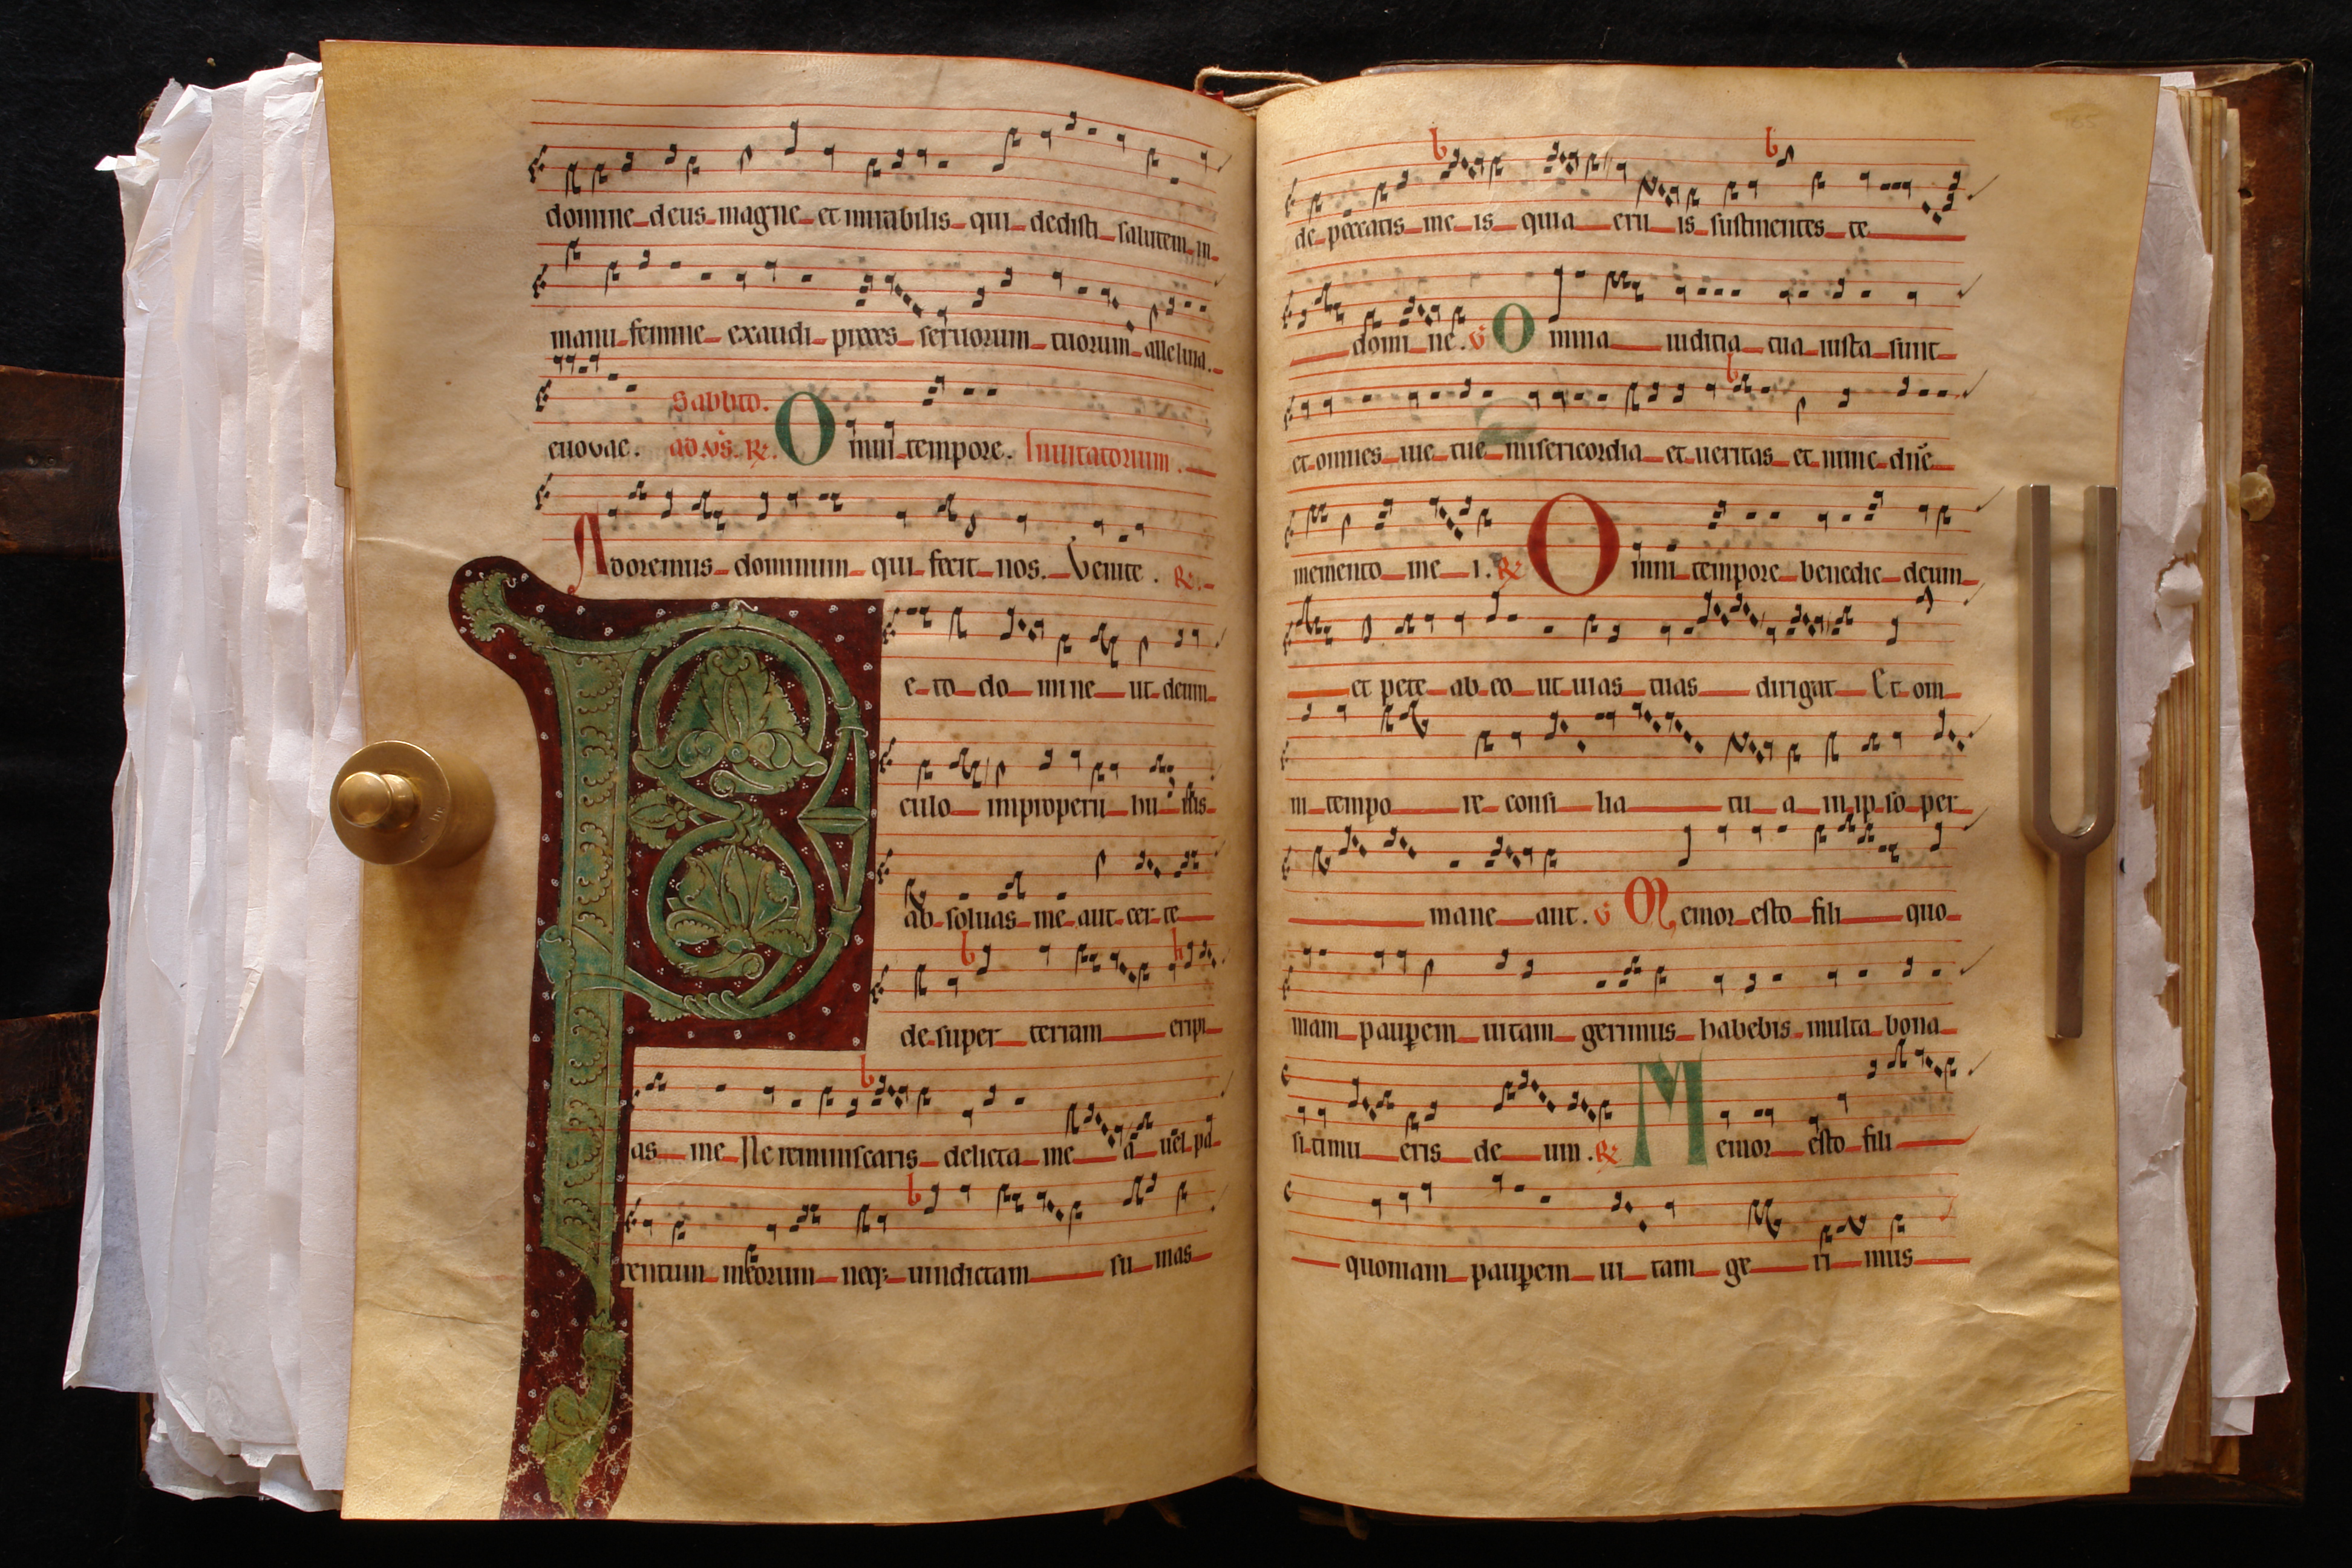 domine deus magne et mirabilis qui dedisti salutem in
manu femine exaudi preces seruorum tuorum alleluia.
Sabbato.
euouae. ad vs. R. Omni tempore. Inuitatorium.
Adoremus dominum qui fecit nos. Venite. R.
Peto domine ut deuin
culo improperii huius
absoluas me aut certe
desuper terram eripi
as me Ne reminiscaris delicta mea uel pa
rentum meorum neq; uindictam sumas
165
de peccatis meis quia eruis sustinentes te
domine. V Omnia iudicia tua iusta sunt
et omnes uie tue misericordia et ueritas et nunc dñe
memento mei. R Omni tempore benedic deum
et pete ab eo ut uias tuas dirigat Et om
ni tempore consilia tua in ipso per
maneant. V Memor esto fili quo
niam paup̱em uitam gerimus habebis multa bona
si timueris deum. R Memor esto fili
quoniam paup̱em uitam gerimus